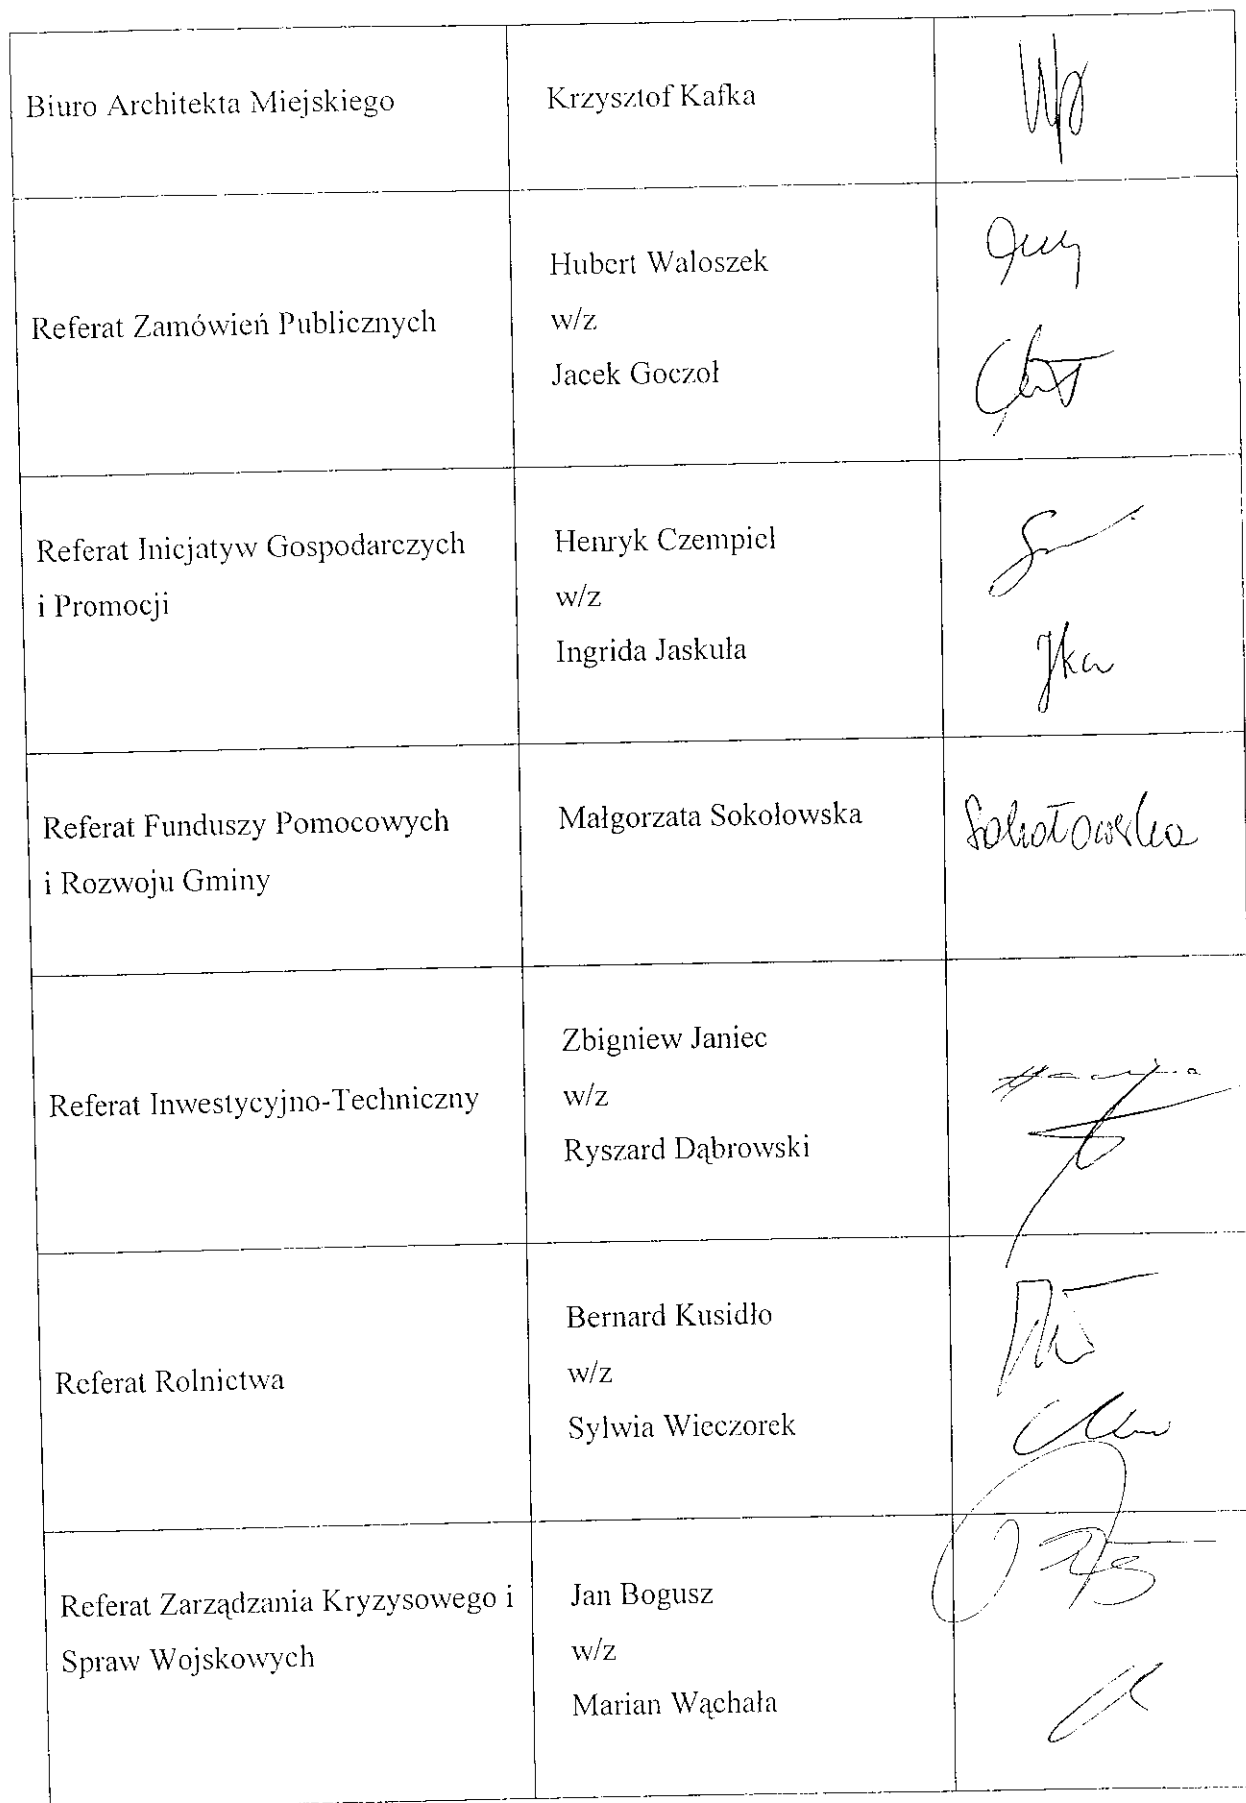 Biuro Architekta Miejskiego
Krzysztof Kafka
Referat Zamówień Publicznych
Hubert Waloszek
w/z
Jacek Goczoł
Referat Inicjatyw Gospodarczych
i Promocji
Henryk Czempiel
w/z
Ingrida Jaskuła
Referat Funduszy Pomocowych
i Rozwoju Gminy
Małgorzata Sokołowska
Sokołowska
Referat Inwestycyjno-Techniczny
Zbigniew Janiec
w/z
Ryszard Dąbrowski
Referat Rolnictwa
Bernard Kusidło
w/z
Sylwia Wieczorek
Referat Zarządzania Kryzysowego i
Spraw Wojskowych
Jan Bogusz
w/z
Marian Wąchała